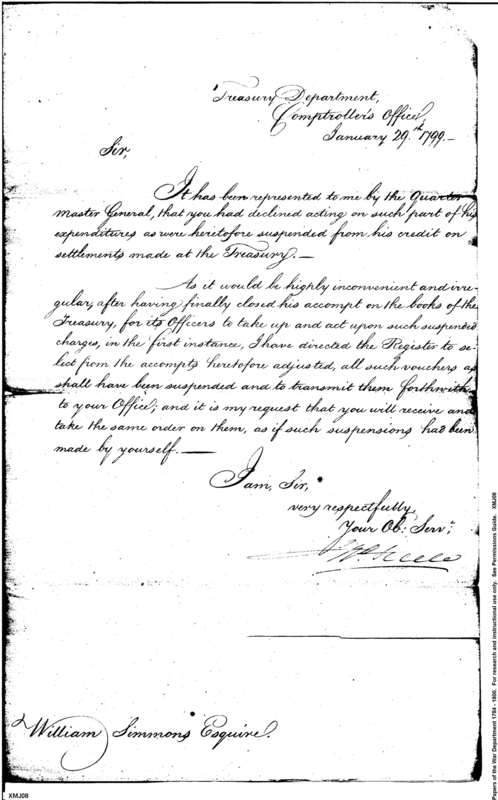 Treasury Department,
Comptroller's Office,
January 29th 1799.—
Sir,
It has been represented to me by the Quarter
Master General, that you had declined acting on such part of his
expenditures as were heretofore suspended from his credit on
settlements made at the Treasury.—
As it would be highly inconvenient and irre-
gular, after having finally closed his accompt on the books of the
Treasury, for its Officers to take up and act upon such suspended
charges, in the first instance, I have directed the Register to se-
lect from the accompts heretofore adjusted, all such vouchers as
shall have been suspended and to transmit them forthwith
to your Office; and it is my request that you will receive and
take the same order on them, as if such suspensions had been
made by yourself.—
I am, Sir,
very respectfully
Your Ob: Servt:
Jn. Steele
William Simmons Esquire.
XMJ08
Papers of the War Department 1784 - 1800. For research and instructional use only. See Permissions Guide. XMJ08